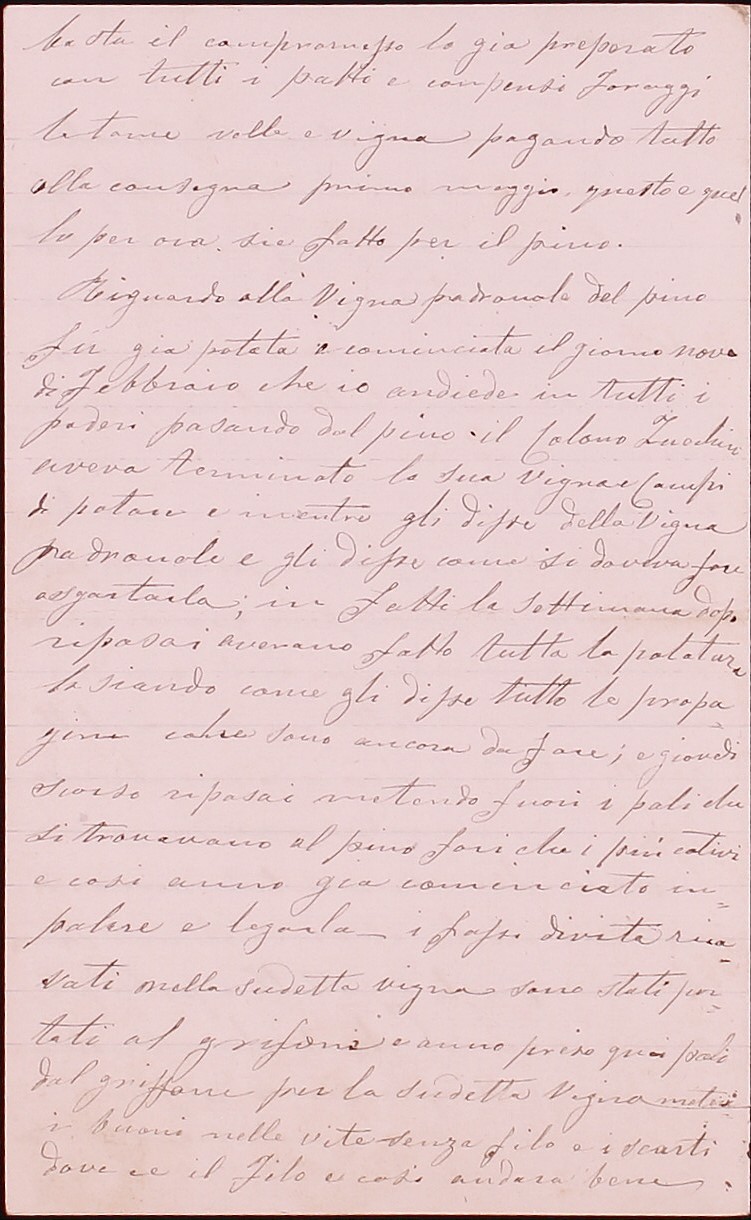 basta il compromesso lo gia preparato
con tutti i patti e conpensi Foraggi
letame valle e vigna pagando tutto
alla consegna primo maggio, questo e quel
lo per ora sie fatto per il pino.
Riguardo alla Vigna padronale del pino
fu gia potata e cominciata il giorno nove
di Febbraio che io andiede in tutti i
poderi pasando dal pino il Colono Zucchini
aveva terminato la sua Vigna e Campi
di potare e mentre gli disse della Vigna
padronale e gli disse come si doveva fare
in fatti la settimana dopo
ripasai avevano fatto tutta la potatura
lasiando come gli disse tutto le propa
gine che sono ancora da fare; e giovedi
scorso ripasai metendo fuori i pali che
si trovavano al pino fori che i più cativi
e cosi anno gia cominciato in=
palare e legarla i fassi di vita rica=
vati nella sudetta vigna sono stati por=
tati al grifone e anno preso qui i pali
dal griffone per la sudetta Vigna
i buoni nelle vite senza filo e i scarti
dove ce il Filo e cosi andara bene.